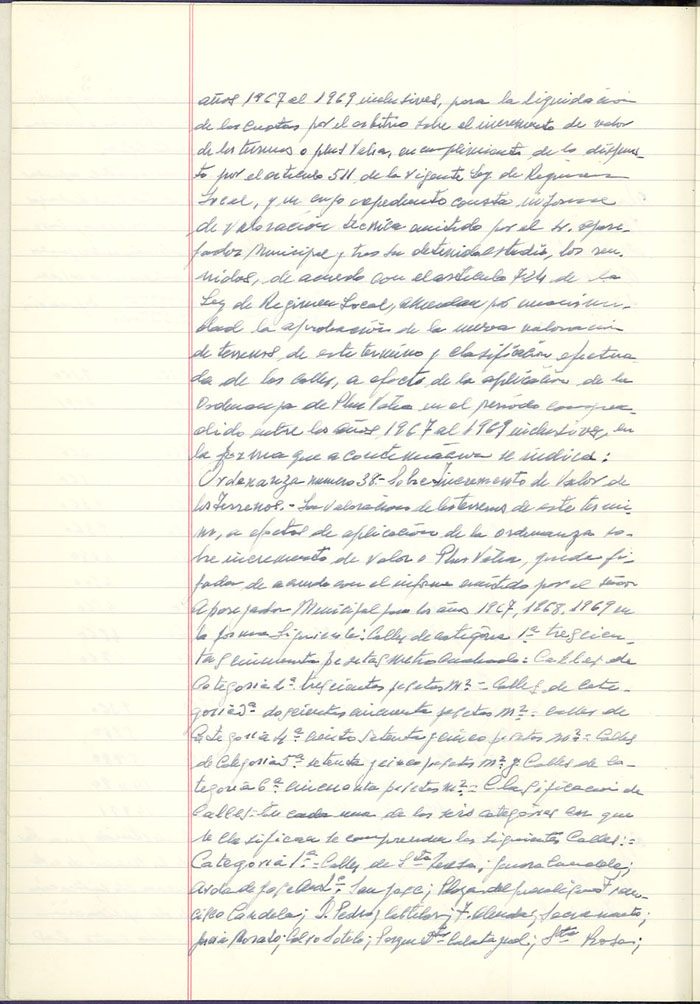 años 1967 al 1969 inclusives, para la liquidación
de las cuotas por el arbitrio sobre el incremento de valor
de los terrenos o plus Valia, en cumplimiento de lo dispues-
to por el articulo 511 de la Vigente Ley de Regimen
Local, y en cuyo expediente consta informe
de Valoración técnica emitido por el Sr. Apare-
jador Municipal y tras su detenido estudio, los reu-
nidos, de acuerdo con el articulo 724 de la
Ley de Regimen Local, acuerdan por unanimi-
dad la aprobación de la nueva valoración
de terrenos, de este termino y Clasificación efectua-
da de las Calles, a efecto de la aplicación de la
Ordenanza de Plus Valia en el período compren-
dido entre los años, 1967 al 1969 inclusives, en
la forma que a continuación se indica:
Ordenanza numero 38- Sobre Incremento de Valor de
los Terrenos.- Las Valoraciones de los terrenos de este termi-
no, a efectos de aplicación de la Ordenanza so-
bre incremento de Valor o Plus Valia, queda fi-
jada de acuerdo con el informe emitido por el Señor
Aparejador Municipal para los años 1967, 1968, 1969 en
la forma Siguiente: Calles de categoria 1ª trescien-
tas cincuenta pesetas metro Cuadrado= Calles de
Categoria 2ª trescientas pesetas m²= Calles de Cate-
goria 3ª doscientas cincuenta pesetas m²= Calles de
Categoria 4ª ciento setenta y cinco pesetas m²= Calles
de Categoria 5ª setenta y cinco pesetas m² y Calles de Ca-
tegoria 6ª cincuenta pesetas m²= Clasificacion de
Calles= En cada una de las seis categorias en que
se Clasifican se comprenden las siguientes Calles:=
Categoria 1ª= Calles de Sta Teresa;
San Jose; Plaza del Fran-
cisco Candela; D. Pedro; Sacramento;
Calvo Sotelo; Parque; Sta Rosa;